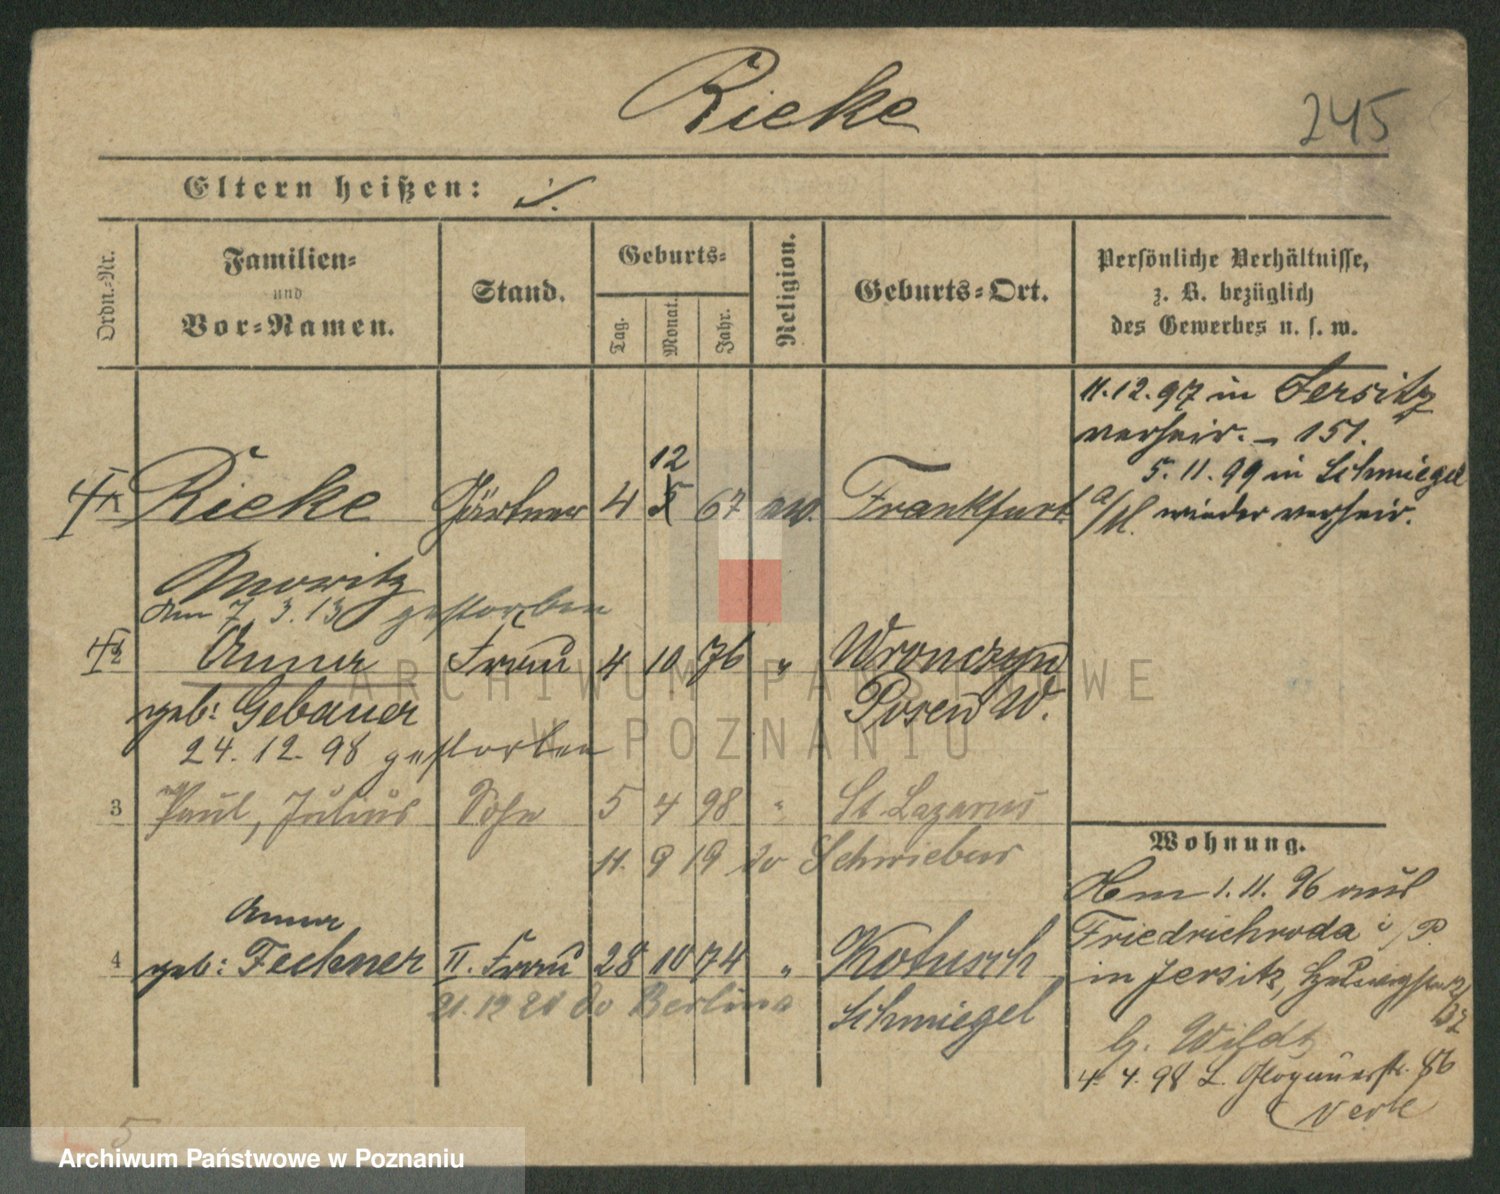 Rieke
245
Eltern heißen: ./.
Ordn.-Nr.
Familien-
und
Vor-Namen.
Stand.
Geburts-
Tag.
Monat.
Jahr.
Religion.
Geburts-Ort.
Persönliche Verhältnisse,
z. B. bezüglich
des Gewerbes u. s. w.
11.12.97 in Jersitz
verheir. – 151.
5. 11. 99 in Schmiegel
wieder verheir.
12
Rieke Gärtner 4 5 67 ev. Frankfurt a/M.
Moritz
Am 7. 3. 13 gestorben
Anna Frau 4 10 76 " Wronczyn
geb: Gebauer Posen W.
24. 12. 98 gestorben
3 Paul, Julius Sohn 5 4 98 " St Lazarus
11. 9 19 do Schwiebus
Anna
4 geb: Fechner II. Frau 28 10 74 " Kotusch
21. 12 21 do Berlin Schmiegel
Wohnung.
Am 1. 11. 96 aus
Friedrichroda i/P.
in Jersitz,
b. Wildt
4. 4. 98 L. Glogauerstr. 86
5
ARCHIWUM PAŃSTWOWE
W POZNANIU
Archiwum Państwowe w Poznaniu